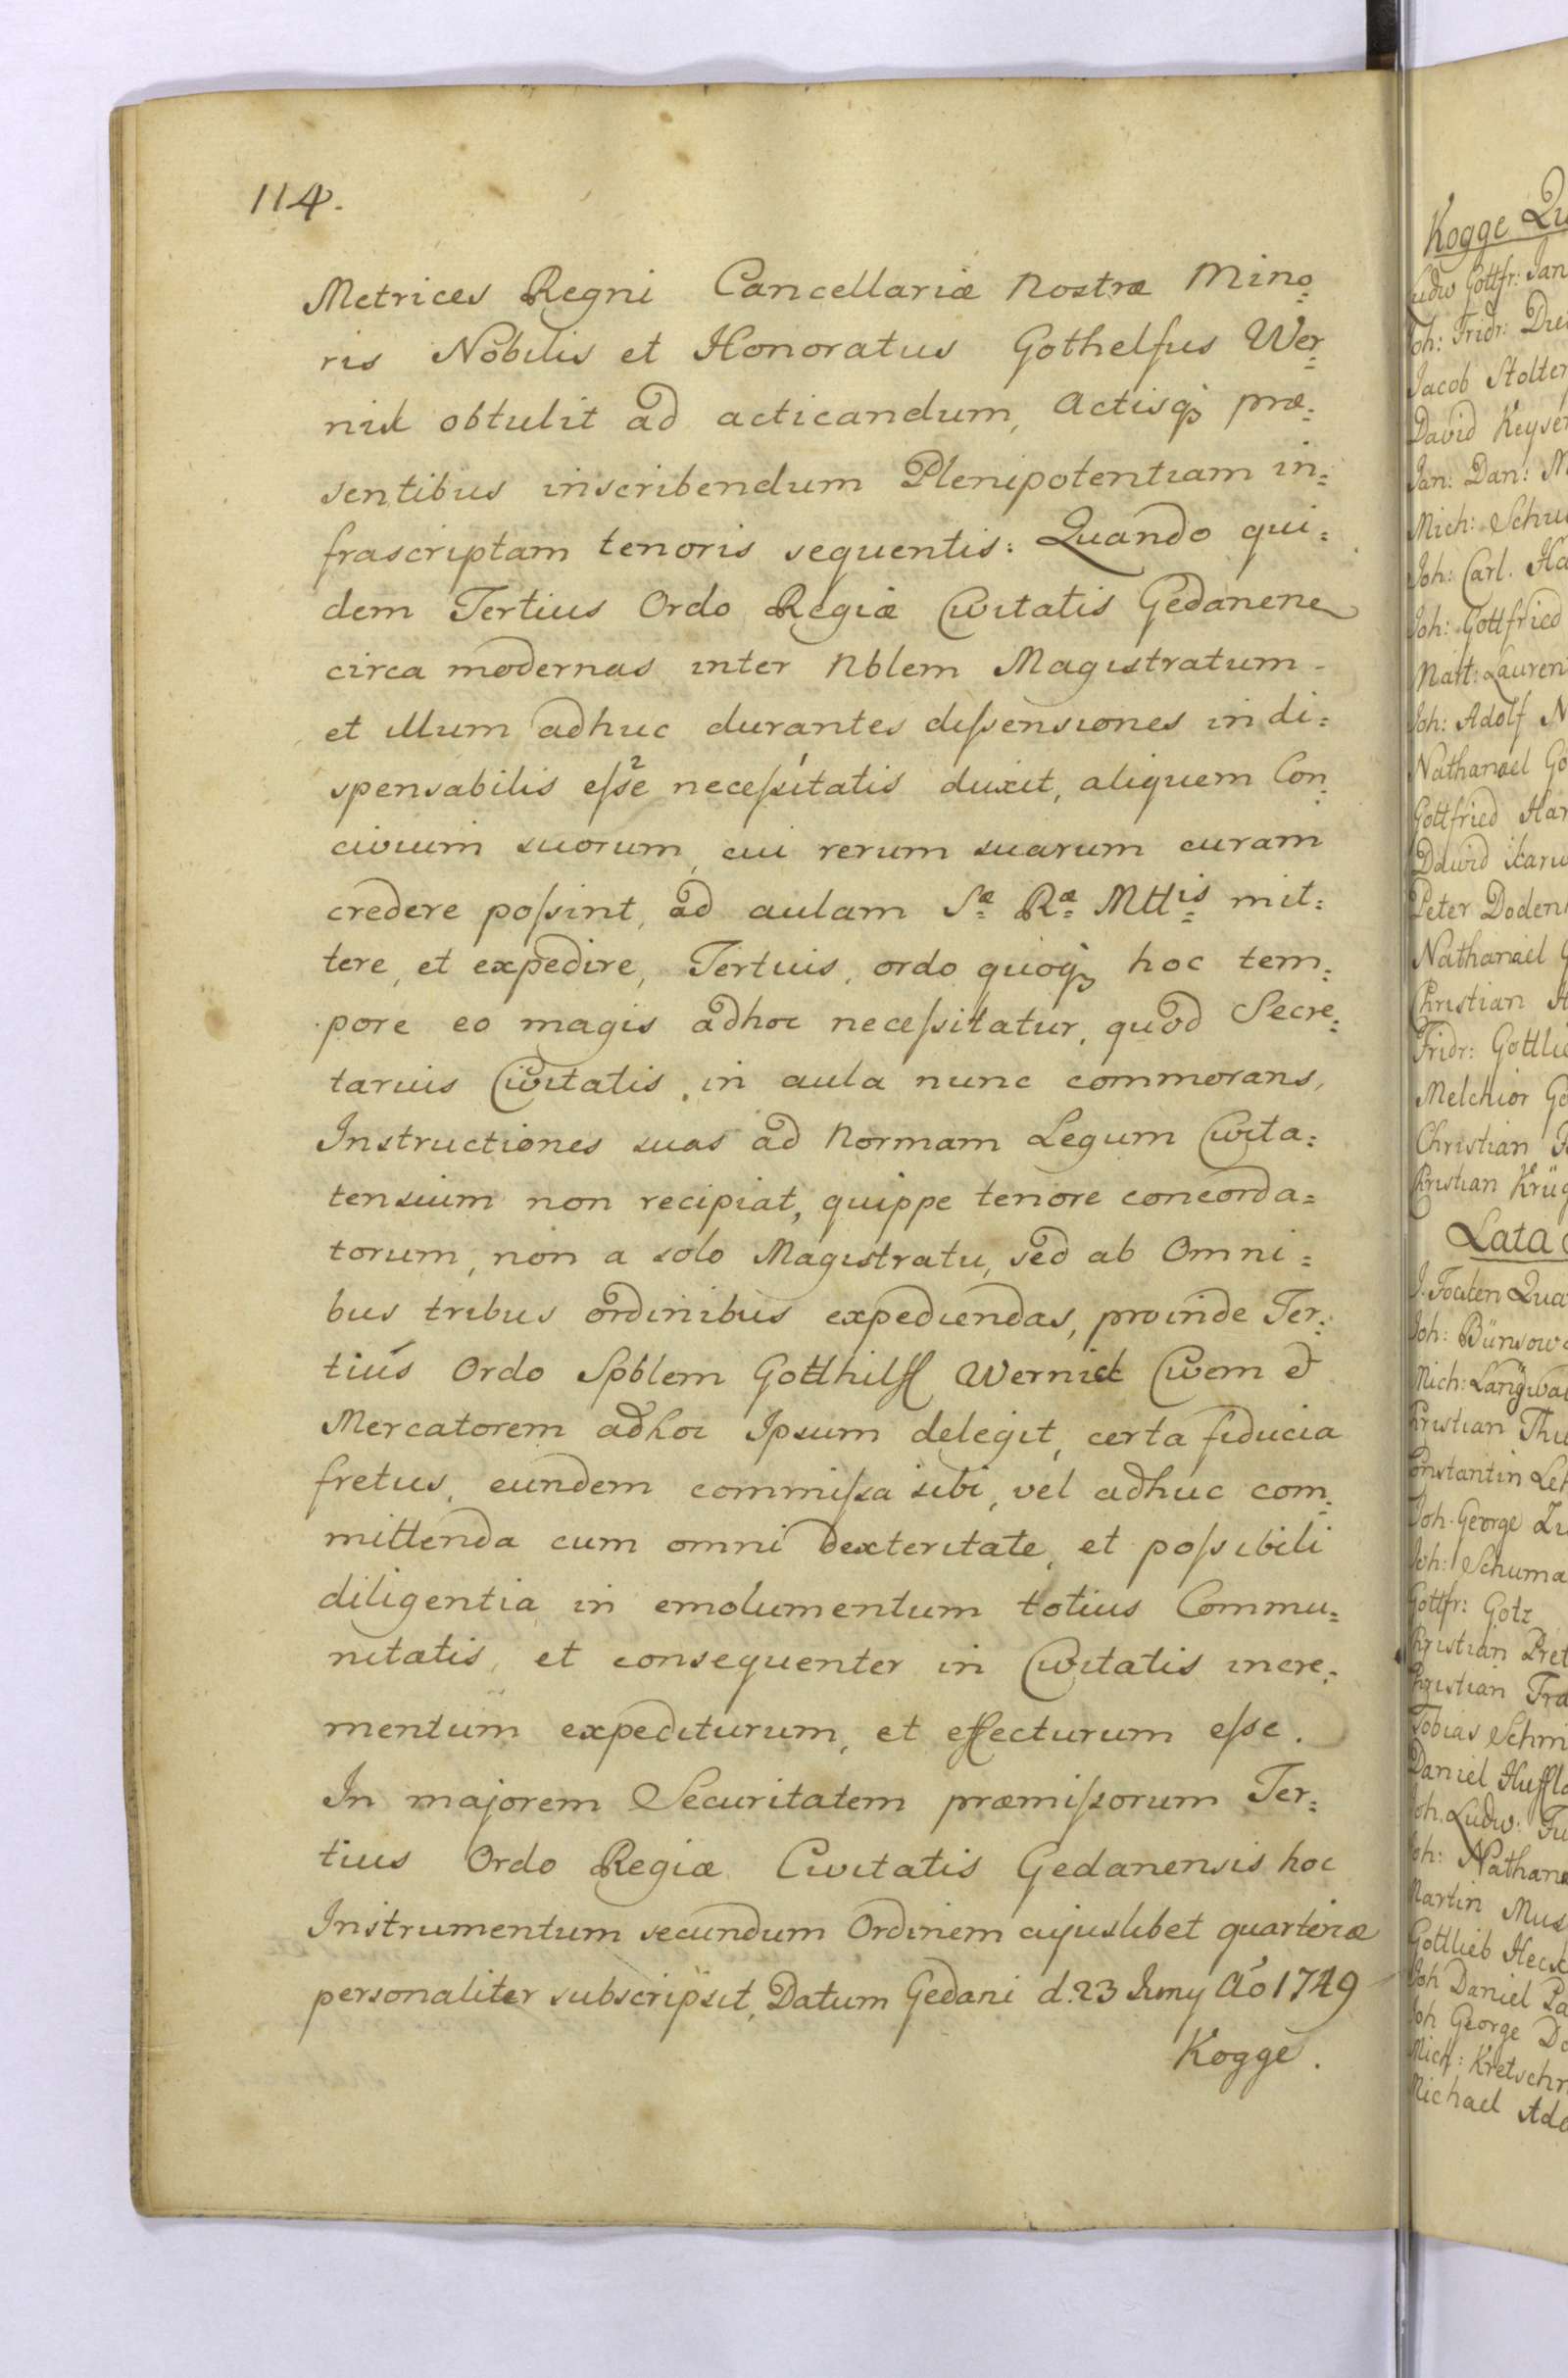 114.
Metrices Regni Cancellariæ Nostræ Mino=
ris Nobilis et Honoratus Gothelfus Wer=
nik obtulit ad acticandum, Actisq; præ=
sentibus inscribendum Plenipotentiam in=
frascriptam tenoris sequentis: Quando qui=
dem Tertius Ordo Regiæ Civitatis Gedanens
circa modernas inter Nblem Magistratum
et illum adhuc durantes dissensiones indi=
spensabilis esse necessitatis duxit, aliquem Con=
civium suorum, cui rerum suarum curam
credere possint, ad aulam Sæ Ræ Mttis mit=
tere, et expedire, Tertius, ordo quoq; hoc tem=
pore eo magis adhoc necessitatur, quod Secre=
tarius Civitatis, in aula nunc commorans,
Instructiones suas ad Normam Legum Civita=
tensium non recipiat, quippe tenore concorda=
torum, non a solo Magistratu, sed ab Omni=
bus tribus ordinibus expediendas, proinde Ter=
tius Ordo Spblem Gotthilff Wernick Civem et
Mercatorem adhoc Ipsum delegit, certa fiducia
fretus, eundem commissa sibi, vel adhuc com=
mittenda cum omni Dexteritate, et possibili
diligentia in emolumentum totius Commu=
nitatis, et consequenter in Civitatis incre=
mentum expediturum, et effecturum esse.
In majorem Securitatem præmissorum Ter=
tius Ordo Regiæ Civitatis Gedanensis hoc
Instrumentum secundum Ordinem cujuslibet quarteriæ
personaliter subscripsit, Datum Gedani d. 23 Juny Aō 1749
Kogge.
Kogge
Ludw Gottfr: Jan
Joh: Fridr:
Jacob Stolter
David Keyser
Jan: Dan:
Mich: Schu
Joh: Carl. Ha
Joh: Gottfried
Matt: Lauren
Joh: Adolf N
Nathanael Go
Gottfried Har
David
Peter Doden
Nathanael G
Christian
Fridr: Gottlie
Melchior Go
Christian
Christian Krüg
Lata
J. Focken Qua
Joh: Bünsow
Mich: Langwa
Christian Thu
Constantin Le
Joh. George
Joh: Schuma
Gottfr: Gotz
Christian Pret
Christian Fra
Tobias Schmi
Daniel Huffla
Joh. Ludw: Fu
Joh: Nathana
Martin Mus
Gottlieb Heck
Joh Daniel Pa
Joh George Do
Mich: Kretschm
Michael Ade